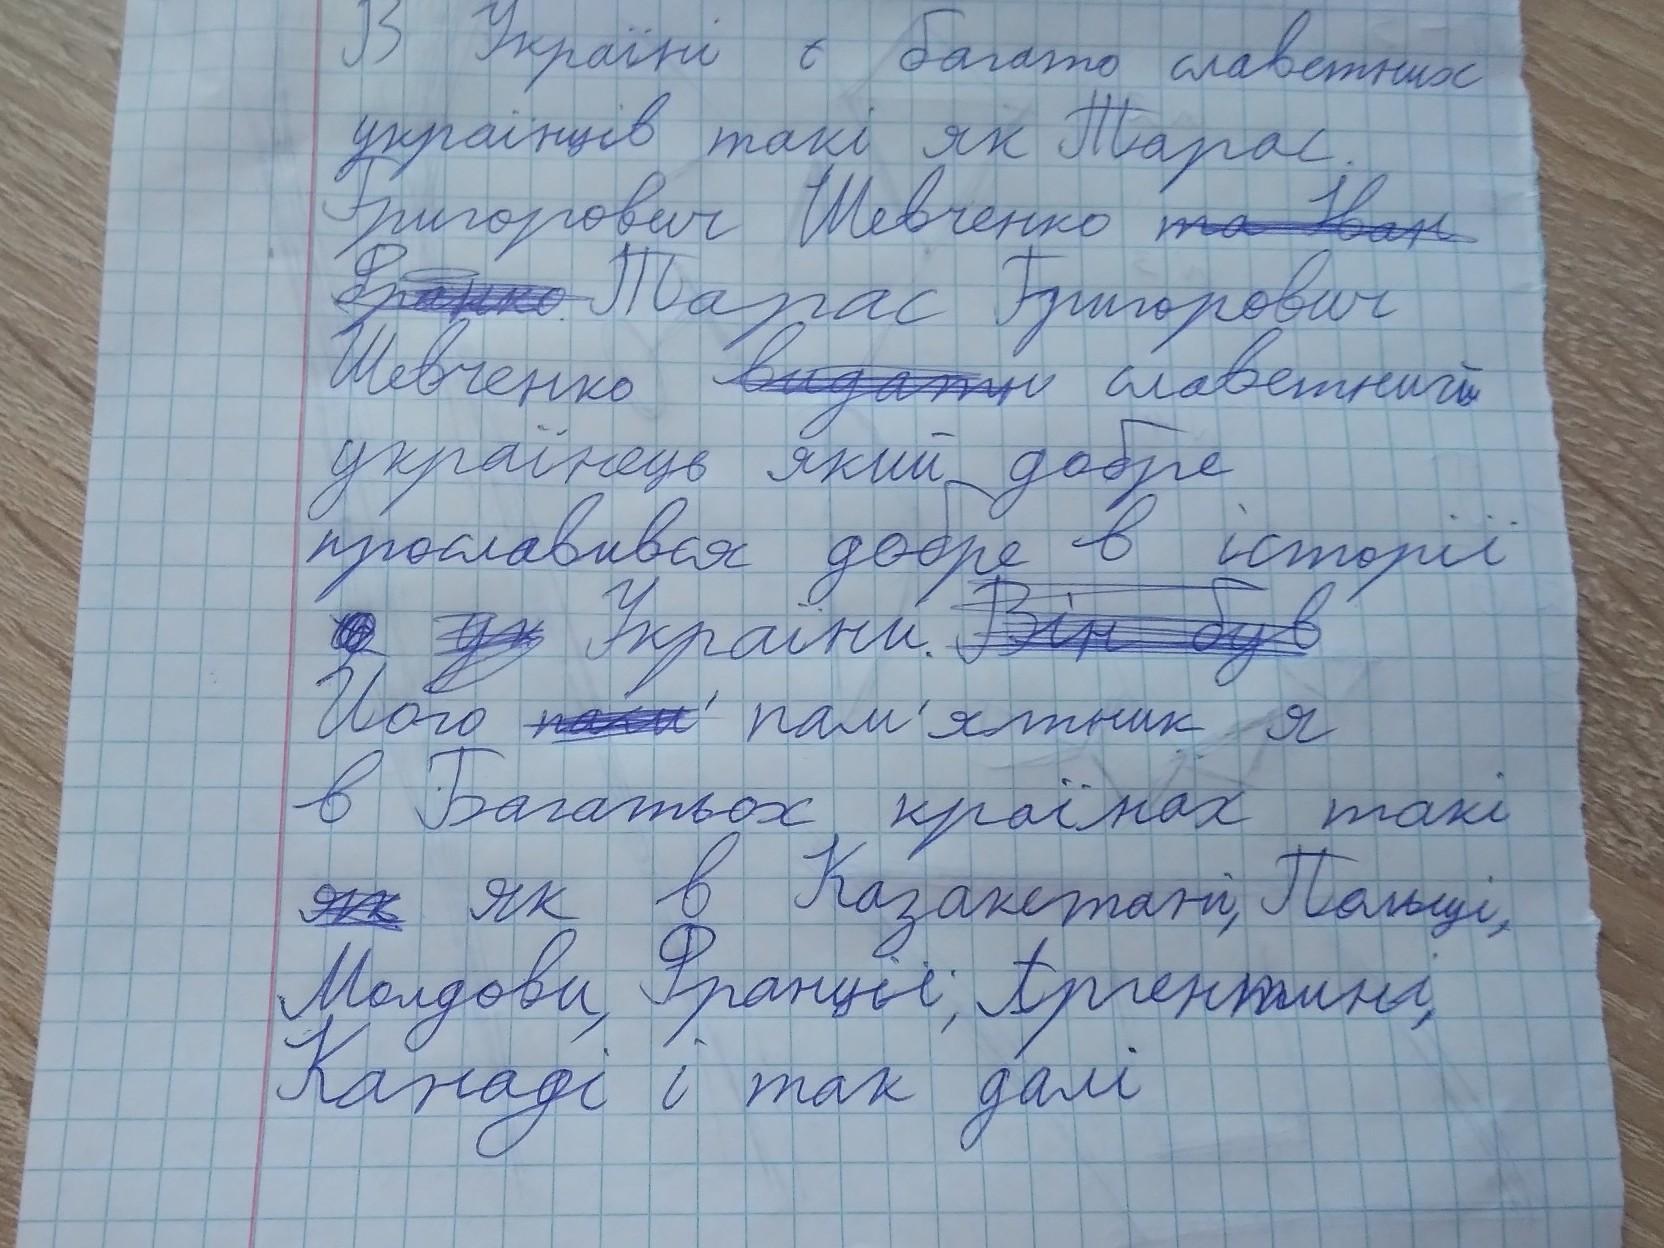 В Україні є багато славетних
українців такі як Тарас.
Григорович Шевченко та Іван
Франко. Тарас Григорович
Шевченко видатни славетний
українець який добре
прославився добре в історії
України. Він був
Його пам'ятник я
в Багатьох країнах такі
як як в Казакстані, Польщі,
Молдови, Франції, Аргентині,
Канаді і так далі